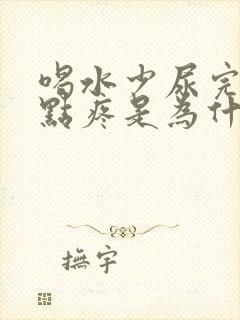 喝水少尿完
點疼是為什
撫宇